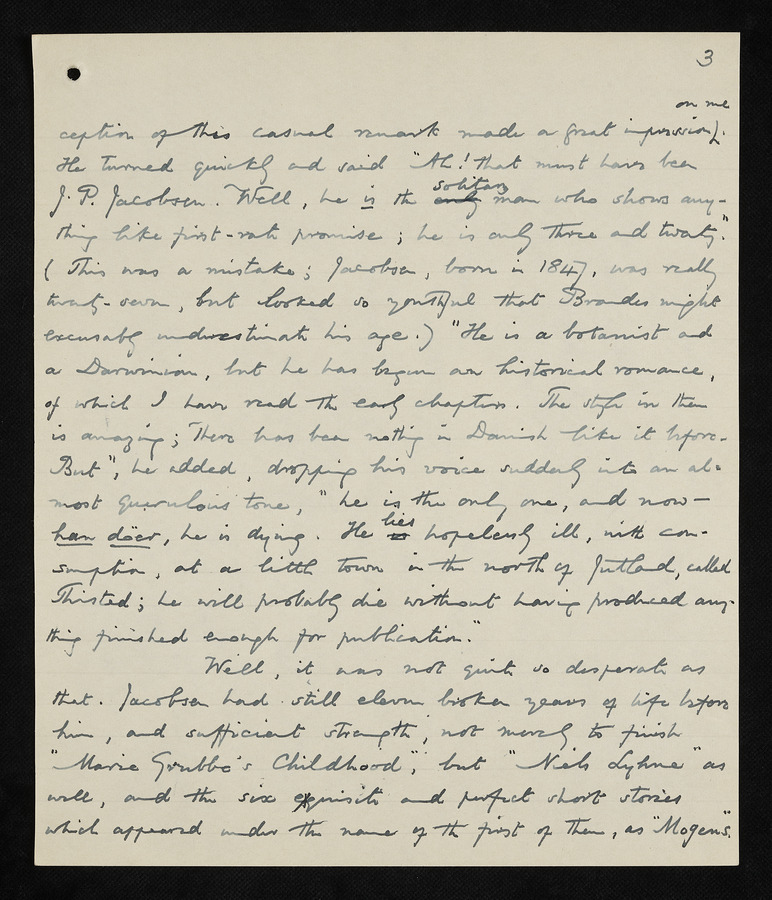 3
on me
ception of this casual remark made a great impression).
He turned quickly and said "Ah! that must have been
J. P. Jacobsen. Well, he is the only solitary man who shows any-
thing like first-rate promise; he is only three and twenty."
(This was a mistake; Jacobsen, born in 1847, was really
twenty-seven, but looked so youthful that Brandes might
excusably underestimate his age.) "He is a botanist and
a Darwinian, but he has begun an historical romance,
of which I have read the early chapters. The style in them
is amazing; there has been nothing in Danish like it before.
But", he added, dropping his voice suddenly into an al-
most querulous tone, "he is the only one, and now—
han döer, he is dying. He is lies hopelessly ill, with con-
sumption, at a little town in the north of Jutland, called
Thisted; he will probably die without having produced any-
thing finished enough for publication."
Well, it was not quite so desperate as
that. Jacobsen had still eleven broken years of life before
him, and sufficient strength, not merely to finish
"Marie Grubbe's Childhood", but "Niels Lyhne" as
well, and the six exquisite and perfect short stories
which appeared under the name of the first of them, as "Mogens".